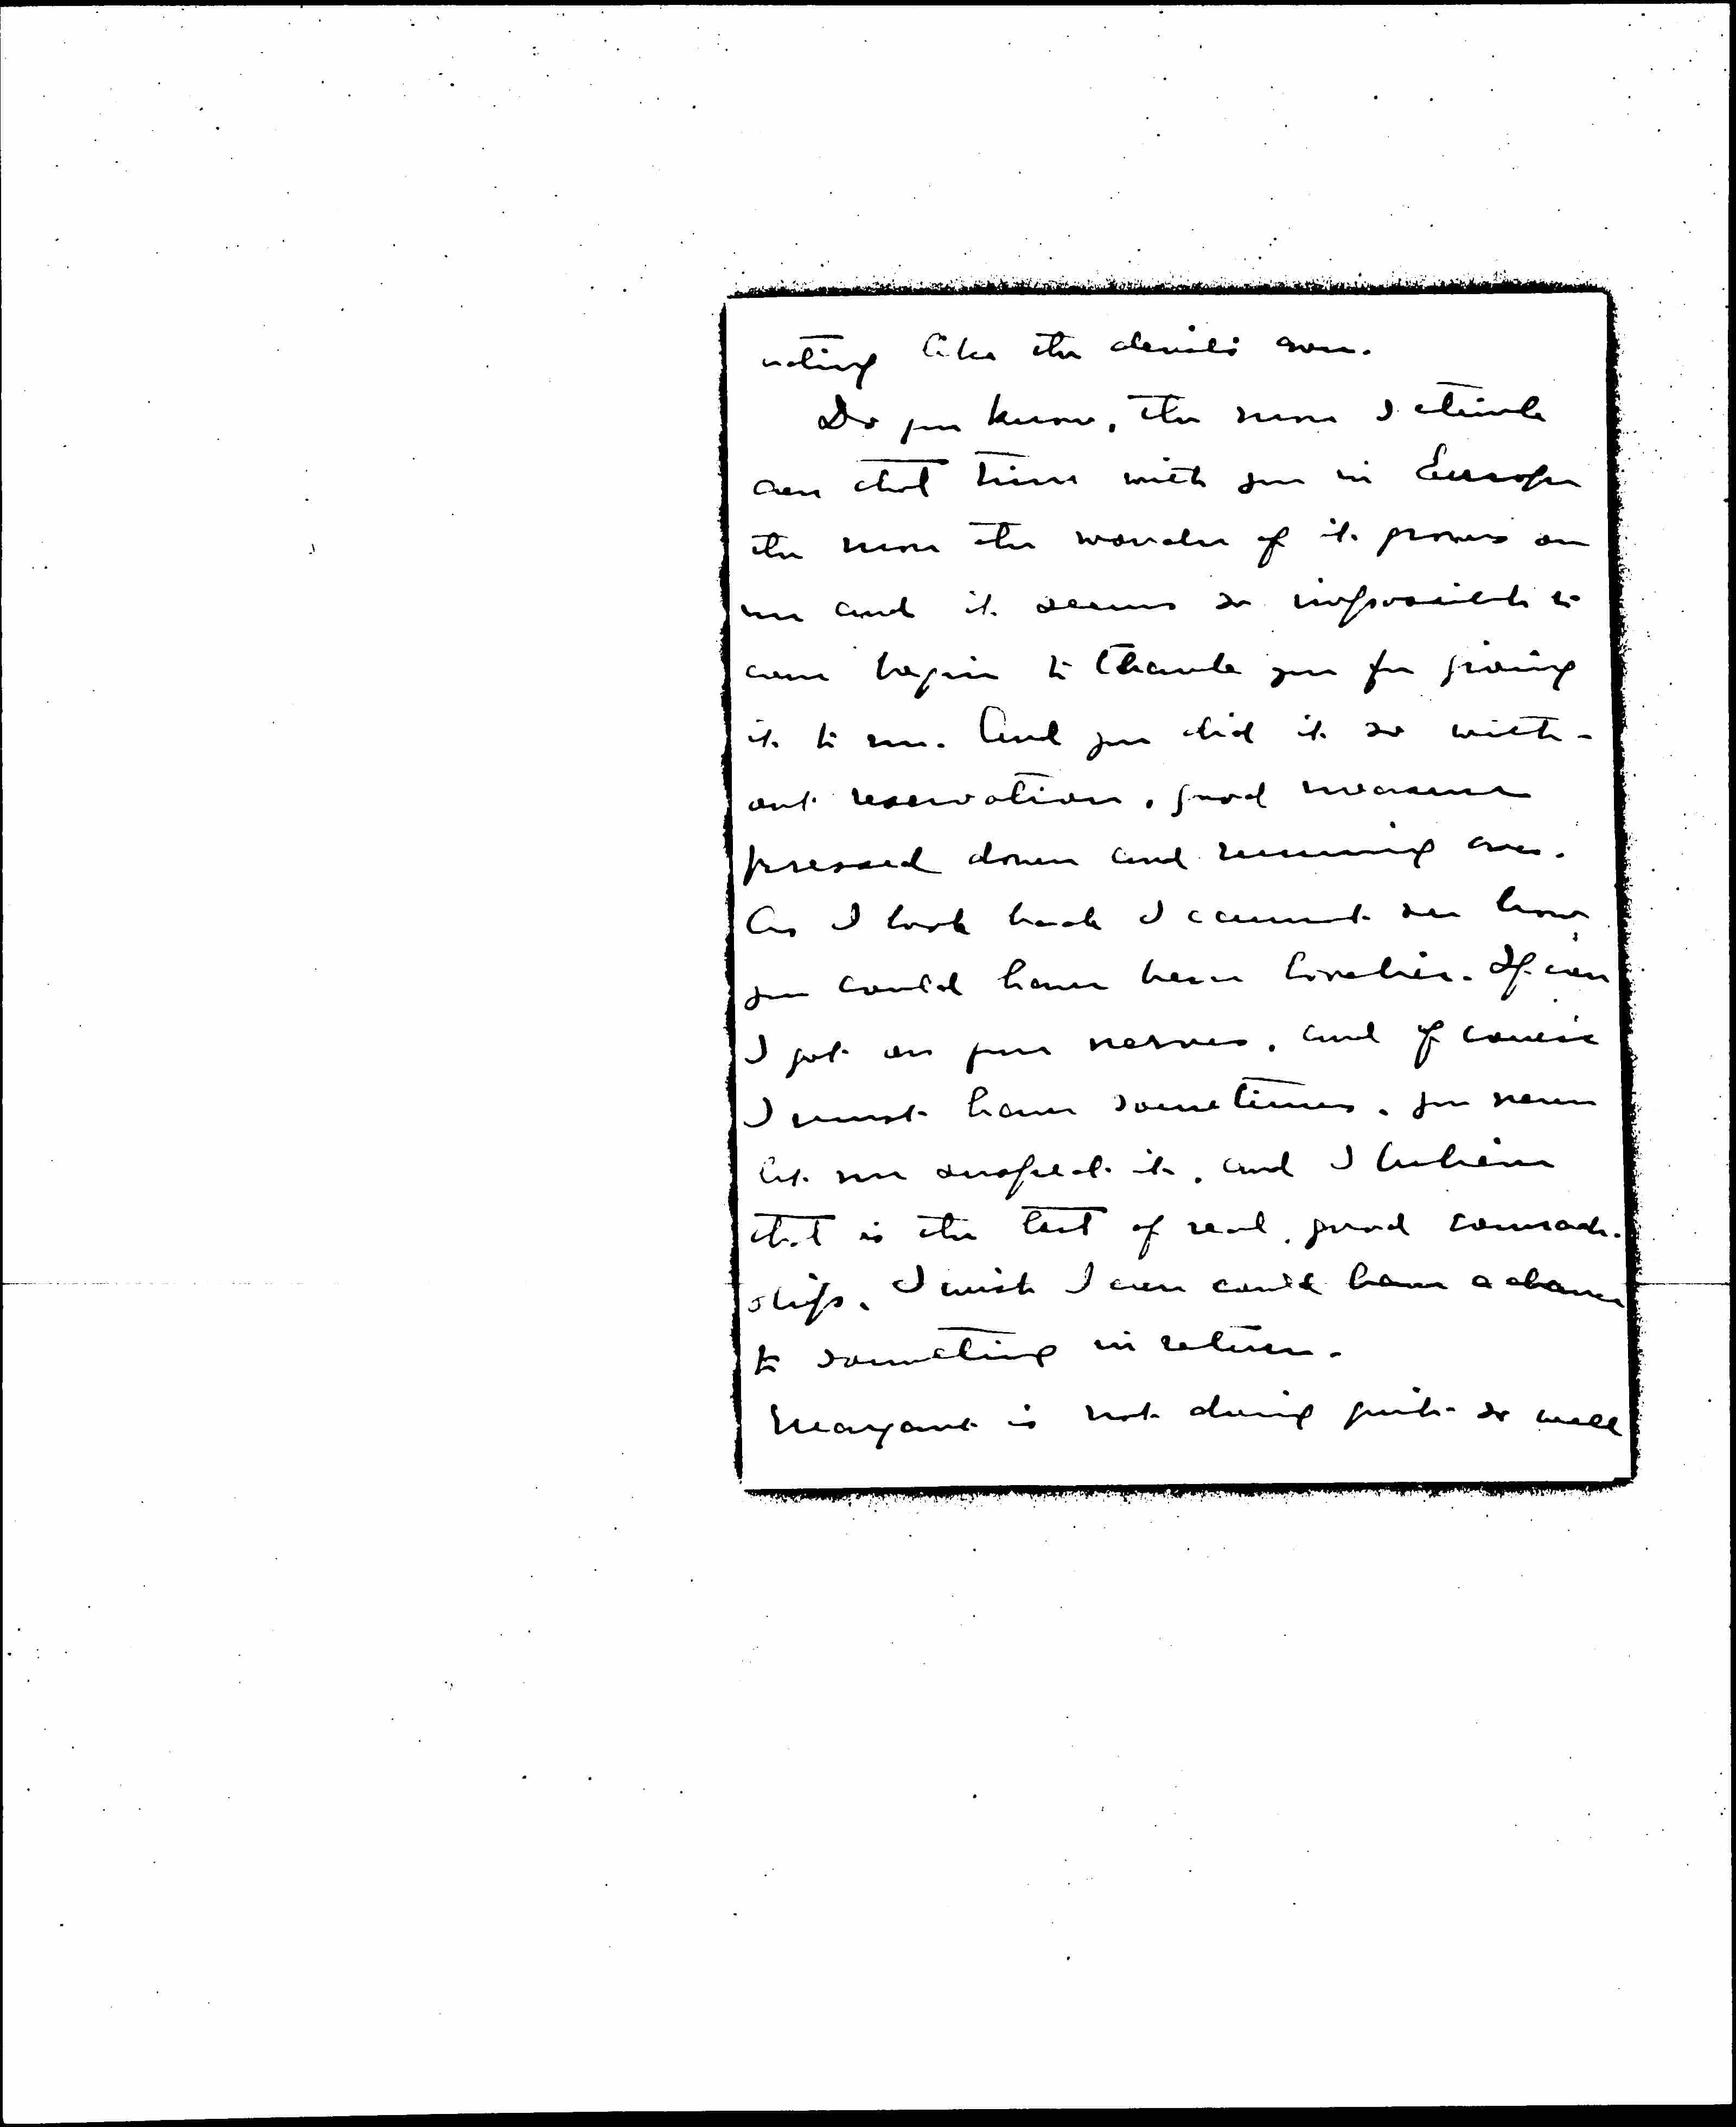 like the devil's own.
Do you know, the more I think
over that time with you in Europe
the more the wonder of it grows on
me and it seems so impossible to
ever begin to thank you for giving
it to me. And you did it so with-
out reservation, good measure
pressed down and running over.
As I look back I cannot see how
you could have been lovelier. If ever
I got on your nerves, and of course
I must have sometimes, you never
let me suspect it, and I believe
that is the test of real, good comrade-
ship. I wish I ever could have a chance
to something in return.
Margaret is not doing quite so well